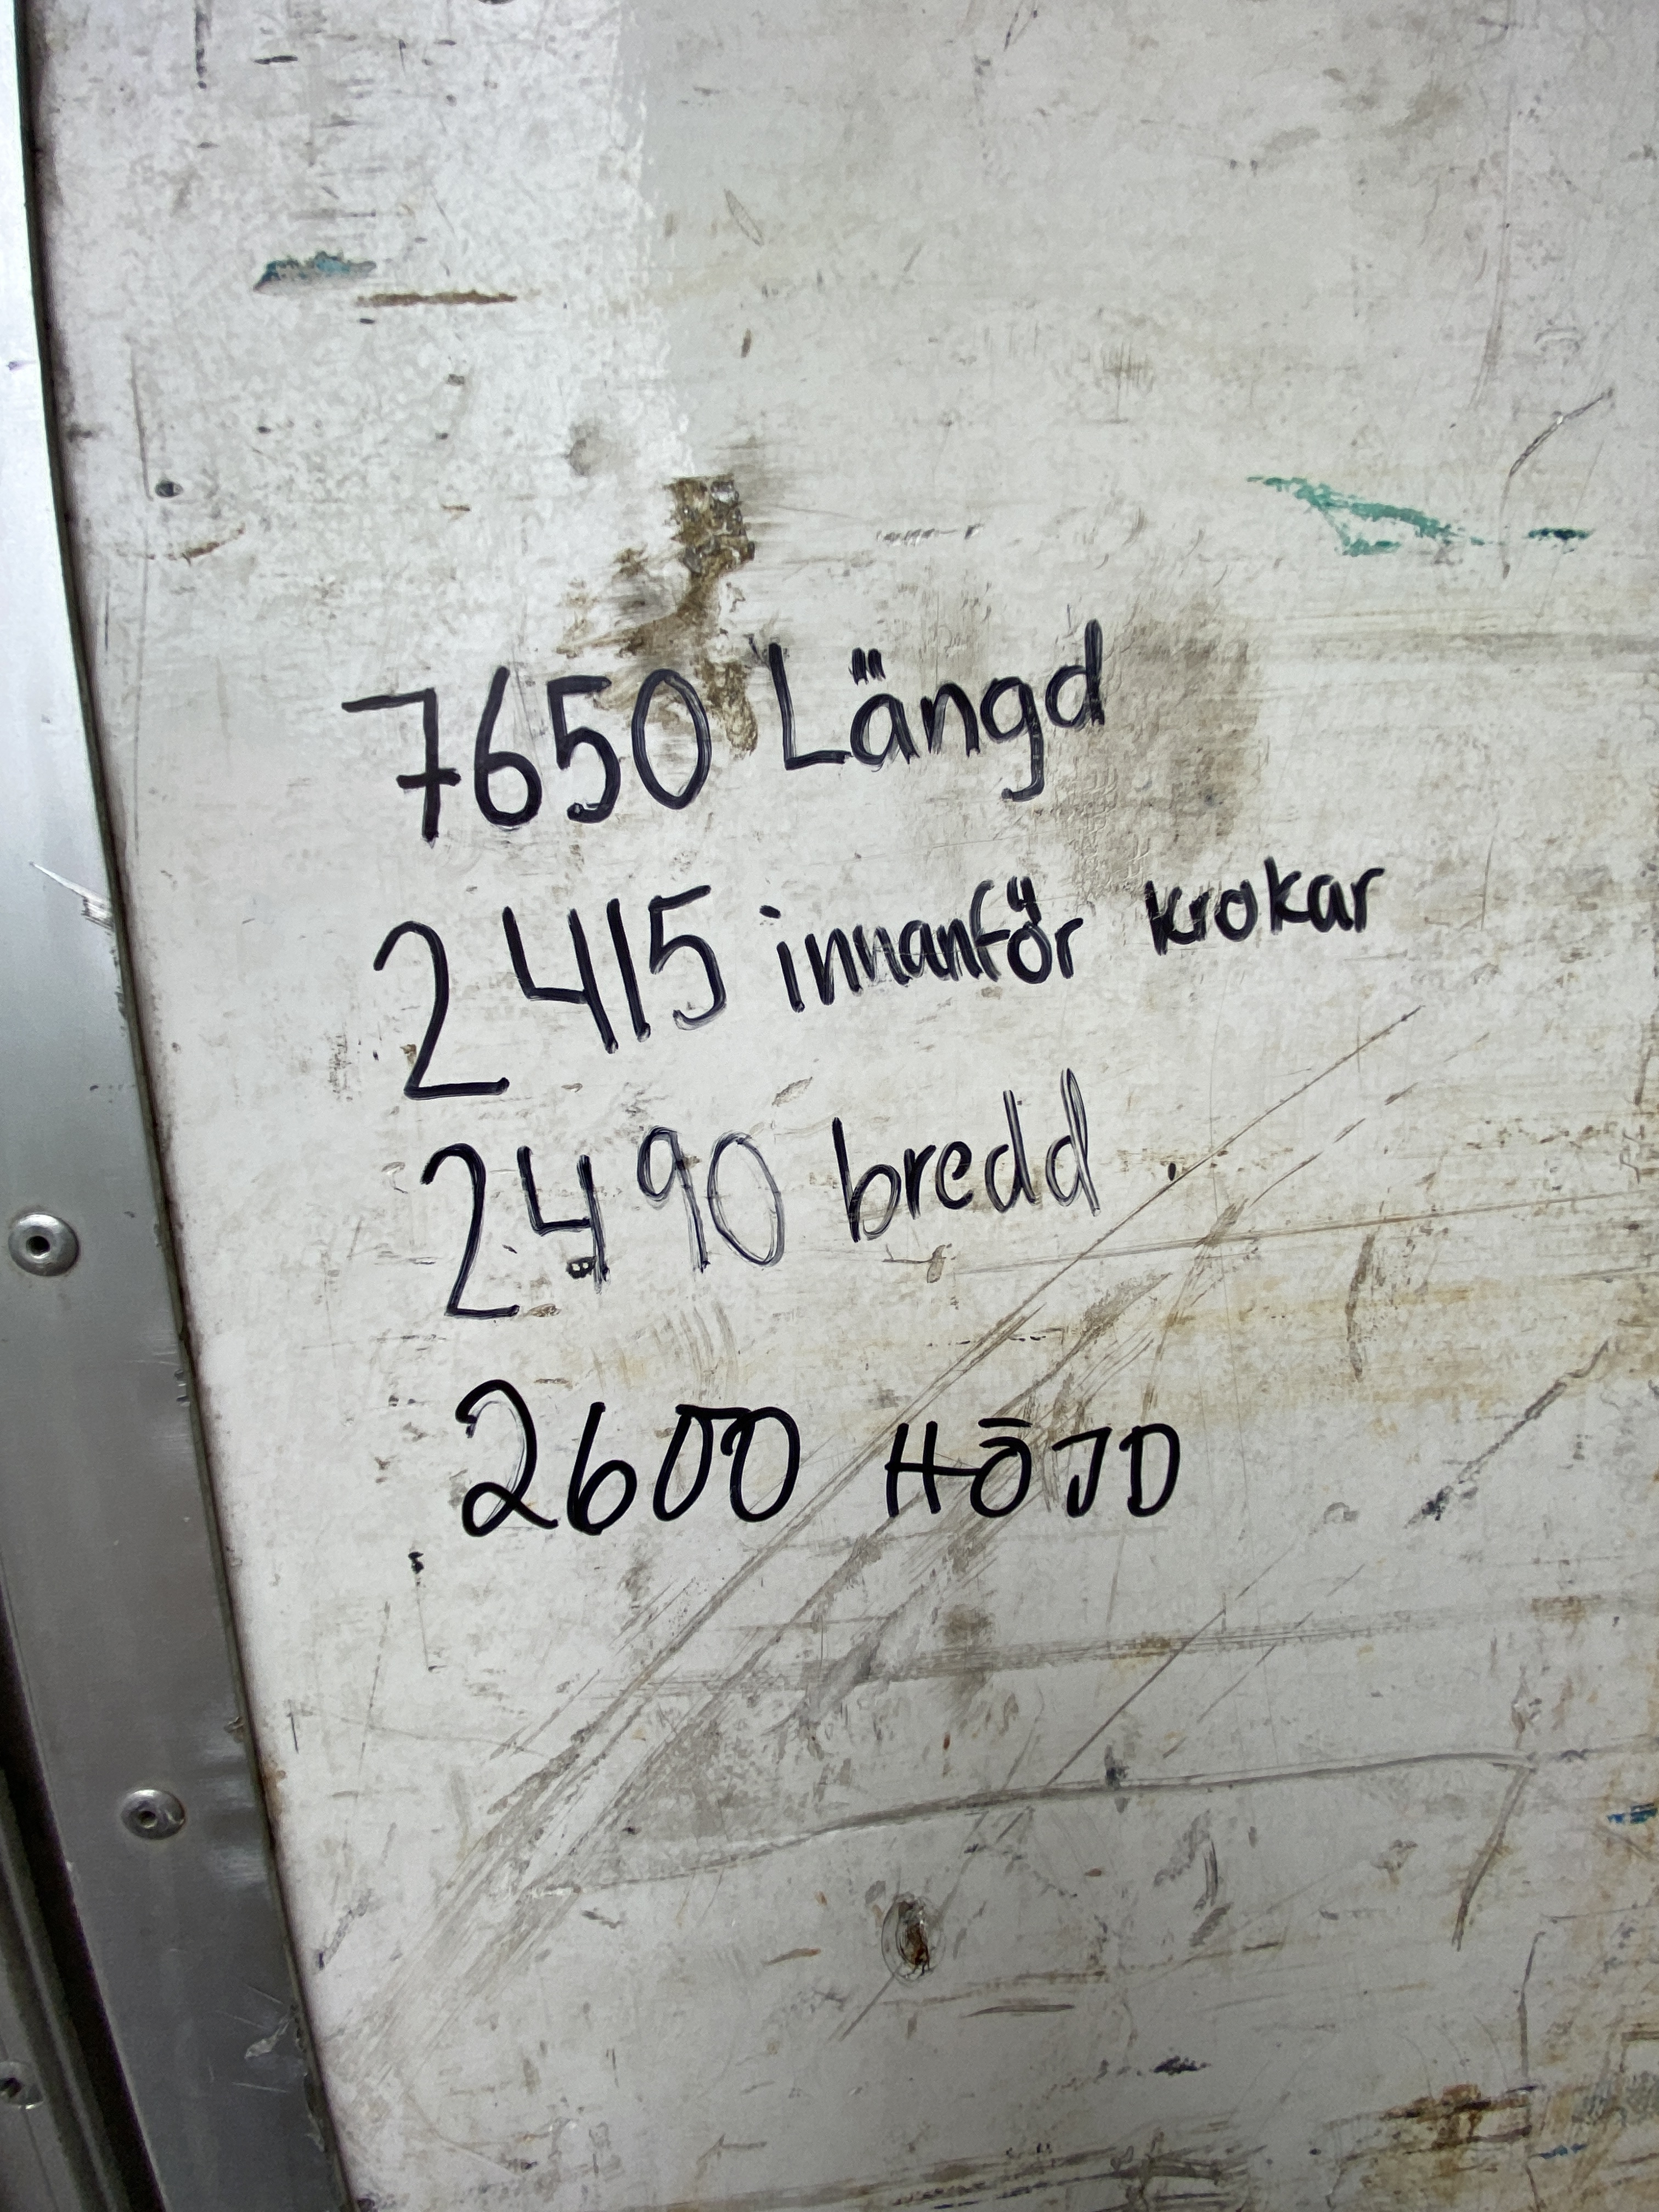 7650 Längd
2415 innanför krokar
2490 bredd
2600 HÖJD